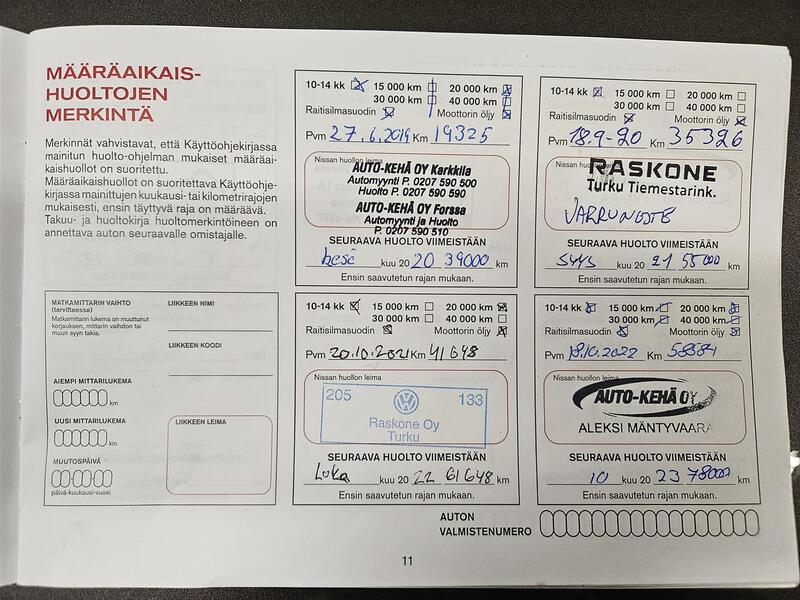 MÄÄRÄAIKAIS-
HUOLTOJEN
MERKINTÄ
Merkinnät vahvistavat, että Käyttöohjekirjassa
mainitun huolto-ohjelman mukaiset määräai-
kaishuollot on suoritettu.
Määräaikaishuollot on suoritettava Käyttöohje-
kirjassa mainittujen kuukausi- tai kilometrirajojen
mukaisesti, ensin täyttyvä raja on määräävä.
Takuu- ja huoltokirja huoltomerkintöineen on
annettava auton seuraavalle omistajalle.
MATKAMITTARIN VAIHTO
(tarvittaessa)
Matkamittarin lukema on muuttunut
korjauksen, mittarin vaihdon tai
muun syyn takia.
LIIKKEEN NIMI
LIIKKEEN KOODI
AIEMPI MITTARILUKEMA
km
UUSI MITTARILUKEMA
km
MUUTOSPÄIVÄ
päivä-kuukausi-vuosi
LIIKKEEN LEIMA
10-14 kk 15 000 km 20 000 km
30 000 km 40 000 km
Raitisilmasuodin Moottorin öljy
Pvm 27.6.2019 Km 19325
Nissan huollon leima
AUTO-KEHÄ OY Karkkila
Automyynti P. 0207 590 500
Huolto P. 0207 590 590
AUTO-KEHÄ OY Forssa
Automyynti ja Huolto
P. 0207 590 510
SEURAAVA HUOLTO VIIMEISTÄÄN
kesä kuu 20 20 39000 km
Ensin saavutetun rajan mukaan.
10-14 kk 15 000 km 20 000 km
30 000 km 40 000 km
Raitisilmasuodin Moottorin öljy
Pvm 18.9-20 Km 35326
Nissan huollon leima
RASKONE
Turku Tiemestarink.
VARRUNESTE
SEURAAVA HUOLTO VIIMEISTÄÄN
SYYS kuu 20 21 55000 km
Ensin saavutetun rajan mukaan.
10-14 kk 15 000 km 20 000 km
30 000 km 40 000 km
Raitisilmasuodin Moottorin öljy
Pvm 20.10.2021 Km 41648
Nissan huollon leima
205 133
Raskone Oy
Turku
SEURAAVA HUOLTO VIIMEISTÄÄN
Loka kuu 20 22 61648 km
Ensin saavutetun rajan mukaan.
10-14 kk 15 000 km 20 000 km
30 000 km 40 000 km
Raitisilmasuodin Moottorin öljy
Pvm 18.10.2022 Km 58584
Nissan huollon leima
AUTO-KEHÄ OY
ALEKSI MÄNTYVAARA
SEURAAVA HUOLTO VIIMEISTÄÄN
10 kuu 20 23 78000 km
Ensin saavutetun rajan mukaan.
AUTON
VALMISTENUMERO
11